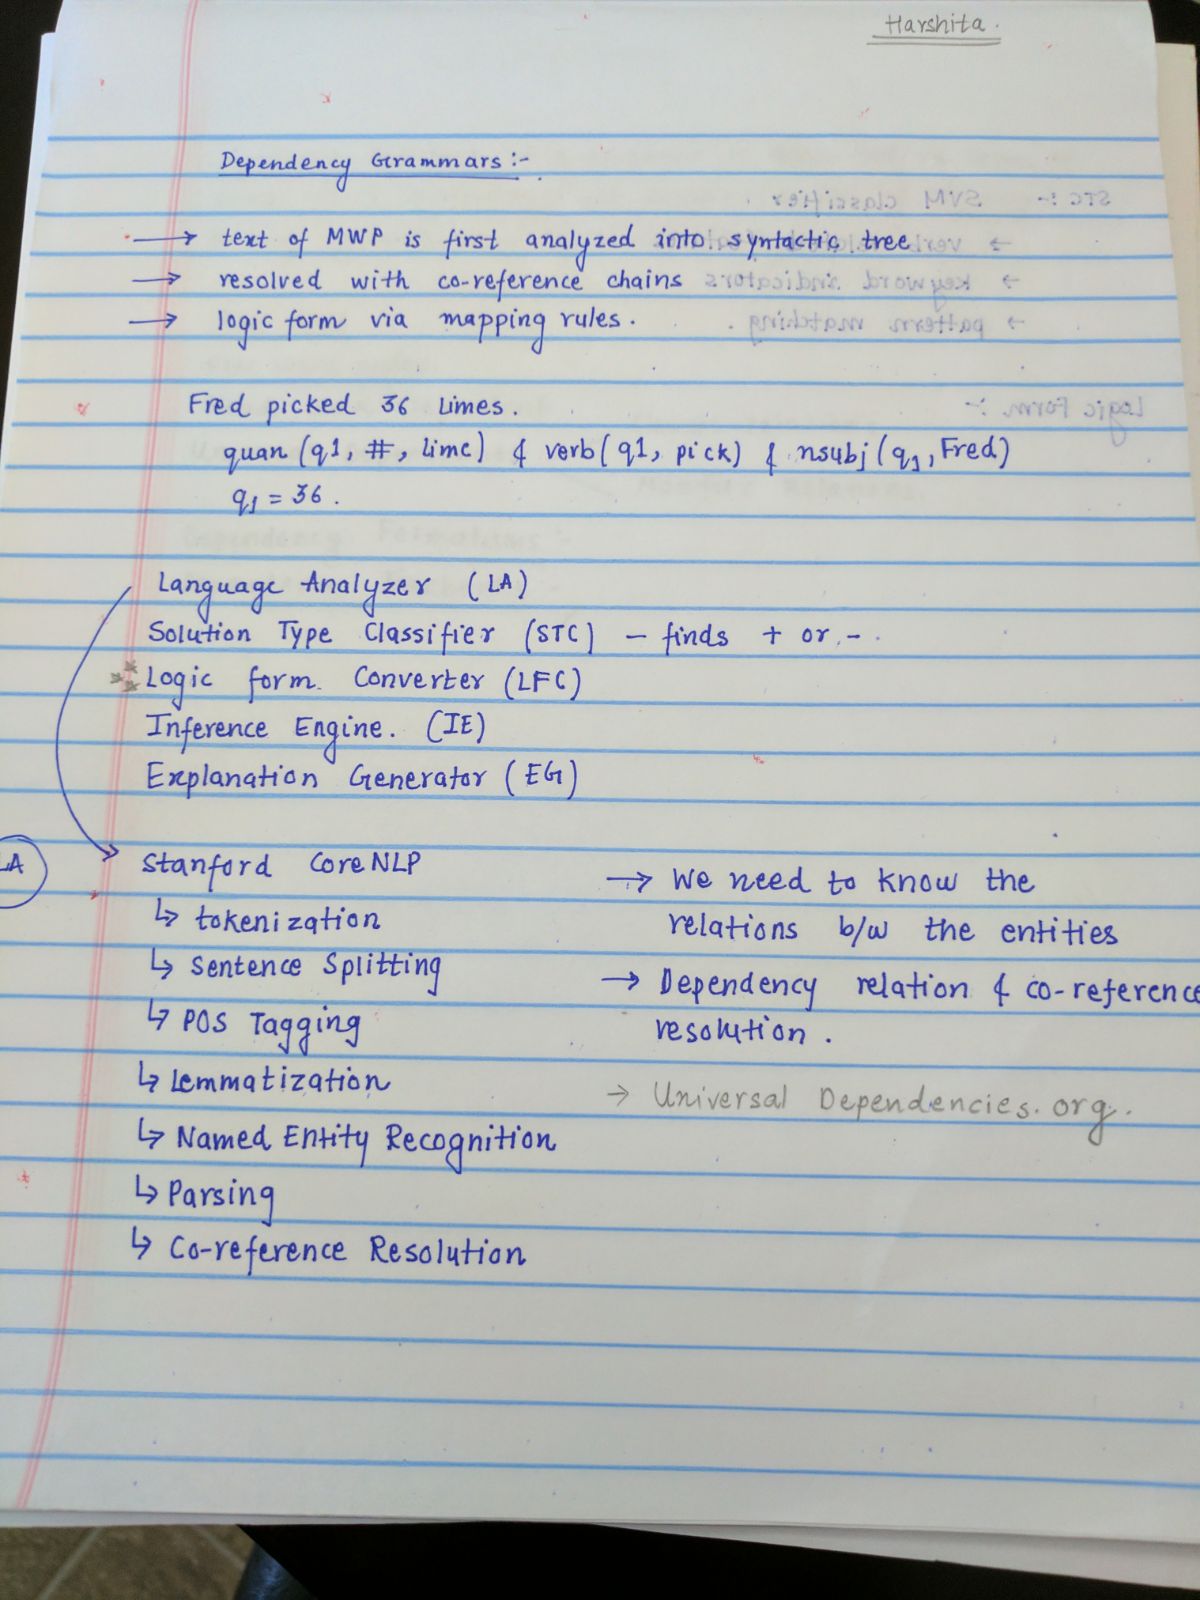 Harshita.
Dependency Grammars :-
→ text of MWP is first analyzed into syntactic tree
→ resolved with co-reference chains
→ logic form via mapping rules.
Fred picked 36 Limes.
quan (q1, #, lime) & verb(q1, pick) & nsubj(q1, Fred)
q1 = 36.
Language Analyzer (LA)
Solution Type Classifier (STC) - finds + or -.
Logic form Converter (LFC)
Inference Engine. (IE)
Explanation Generator (EG)
LA
Stanford CoreNLP
↳ tokenization
↳ Sentence Splitting
↳ POS Tagging
↳ Lemmatization
↳ Named Entity Recognition
↳ Parsing
↳ Co-reference Resolution
→ We need to know the
relations b/w the entities
→ Dependency relation & co-reference
resolution.
→ Universal Dependencies.org.
STC :- SVM classifier.
→ keyword indicators
→ pattern matching.
Logic Form :-